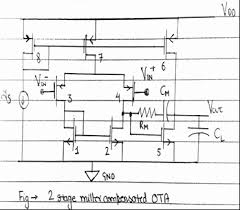 VDD
8
7
6
VIN-
VIN+
3
4
CM
VOUT
RM
CL
1
2
5
GND
Fig → 2 stage miller compensated OTA